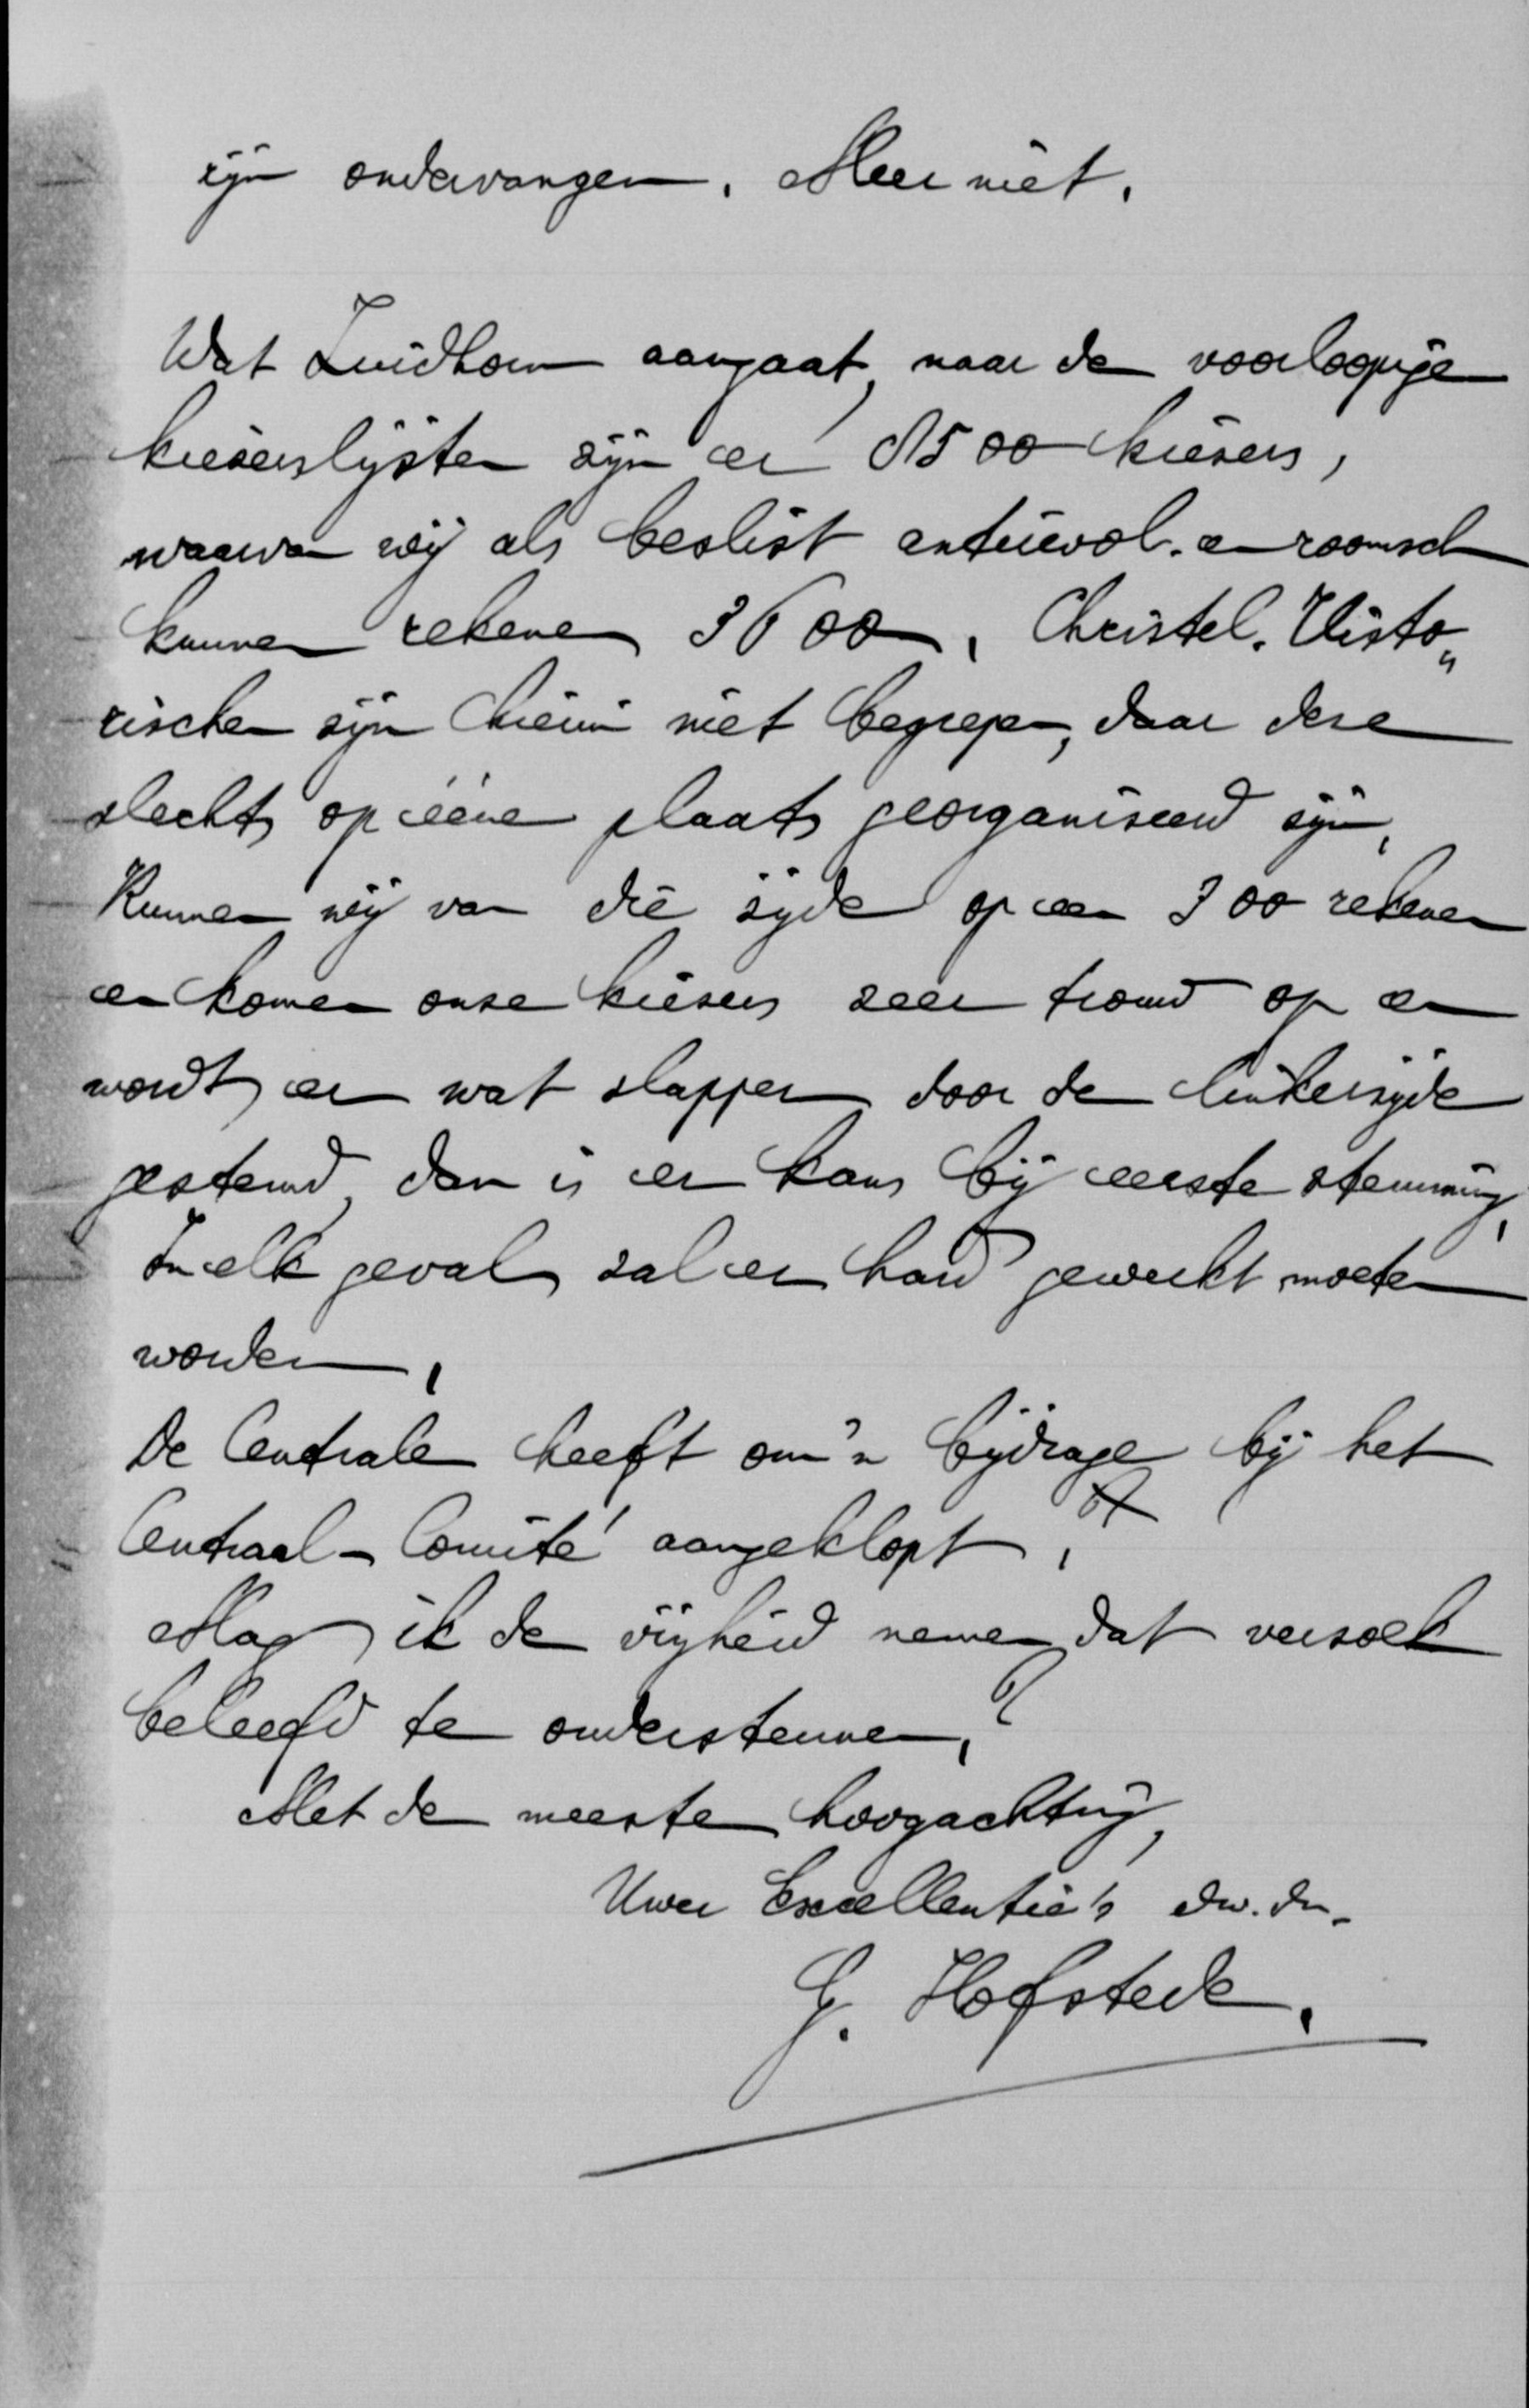 zijn ondervangen. Meer niet.
Wat Zuidhorn aangaat, naar de voorloopige
kiezerslijsten zijn er 8500 kiezers,
waarvan wij als beslist antirevol. en roomsch
kunnen rekenen 3600. Christel. Histo„
rischen zijn hierin niet begrepen, daar deze
slechts op ééne plaats georganiseerd zijn.
Kunnen wij van die zijde op een 300 rekenen
en komen onze kiezers zeer trouw op en
wordt er wat slapper door de linkerzijde
gestemd, dan is er kans bij eerste stemming.
In elk geval zal er hard gewerkt moeten
worden.
De Centrale heeft om 'n bijdrage bij het
Centraal-Comité aangeklopt.
Mag ik de vrijheid nemen dat verzoek
beleefd te ondersteunen?
Met de meeste hoogachting,
Uwer Excellentie's dw. dn.
G. Hofstede.